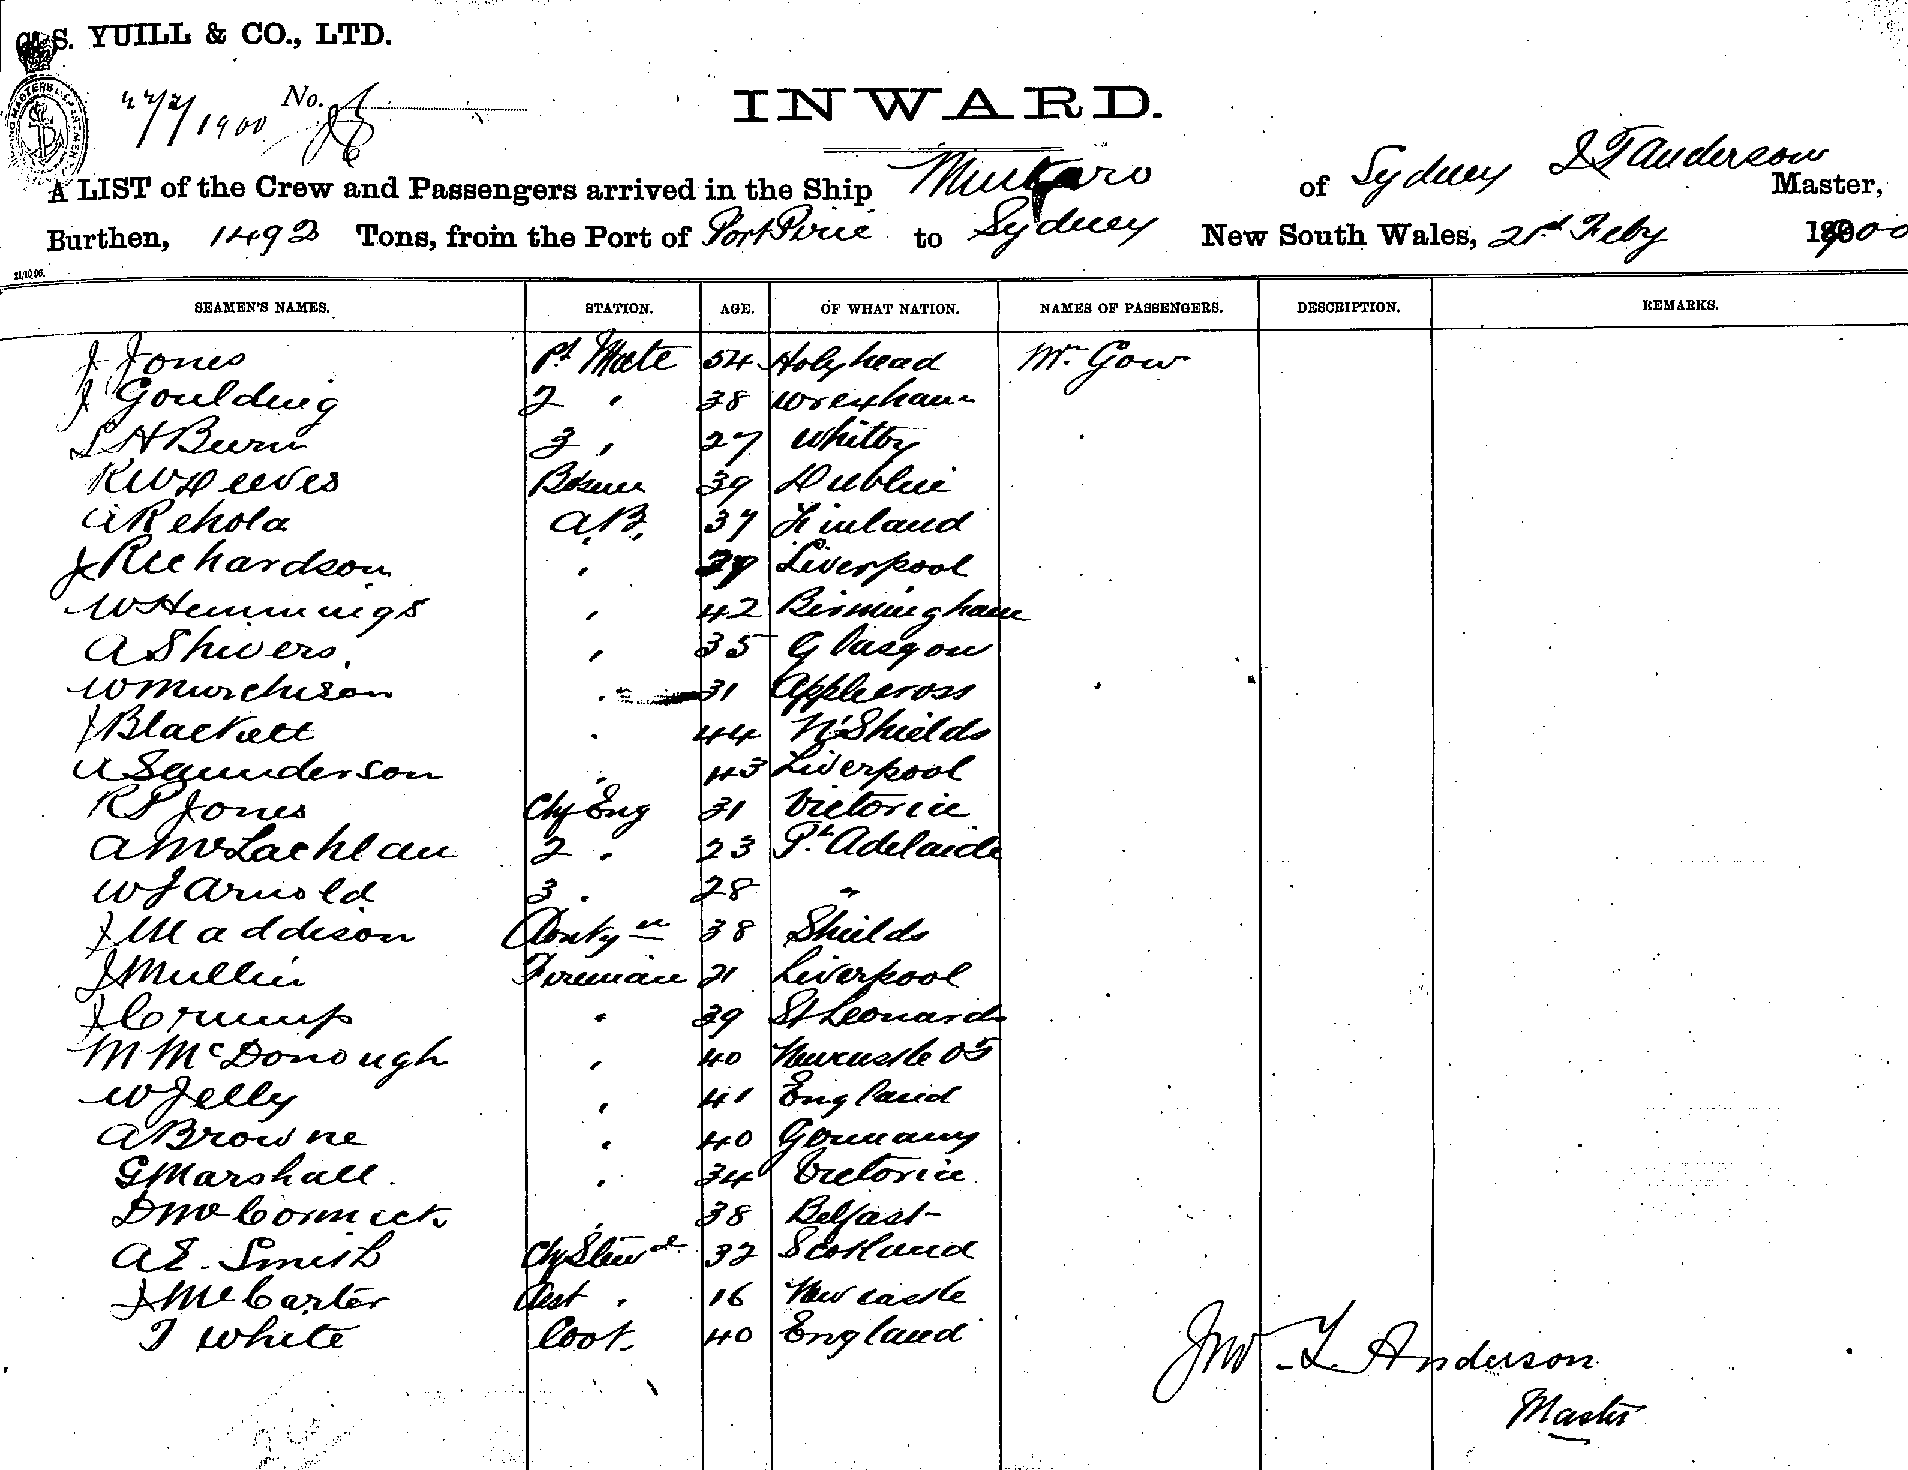 G. S. YUILL & CO., LTD.
22/2/1900 No.
INWARD.
A LIST of the Crew and Passengers arrived in the Ship Mutaro of Sydney J T Anderson Master,
Burthen, 1492 Tons, from the Port of Port Pirie to Sydney New South Wales, 21st Feby 1900
21/10 96.
SEAMEN'S NAMES. STATION. AGE. OF WHAT NATION. NAMES OF PASSENGERS. DESCRIPTION. REMARKS.
J Jones 1st Mate 54 Holyhead Mr. Gow
J Goulding 2 " 38 Wrexham
S H Burn 3 " 27 Whitby
R W Reeves Bosun 39 Dublin
A Rehola A.B. 37 Finland
J Richardson " Liverpool
W Hemmings " 42 Birmingham
A Shivers. " 35 Glasgow
W Murchison " 31 Applecross
J Blackett " 44 N. Shields
A Saunderson " 43 Liverpool
R P Jones Chf Eng 31 Victoria
A McLachlan 2 " 23 Pt. Adelaide
W J Arnold 3 " 28 "
J Maddison Donkyman 38 Shields
J Mullin Fireman 21 Liverpool
J Crump " 39 St Leonards
M McDonough " 40 Newcastle
W Jelly " 41 England
A Browne " 40 Germany
G Marshall " 34 Victoria
D McCormick " 38 Belfast
A E. Smith Chf Stewd 32 Scotland
J McCarter Asst " 16 Newcastle
T White Cook 40 England
Jno. T. Anderson
Master